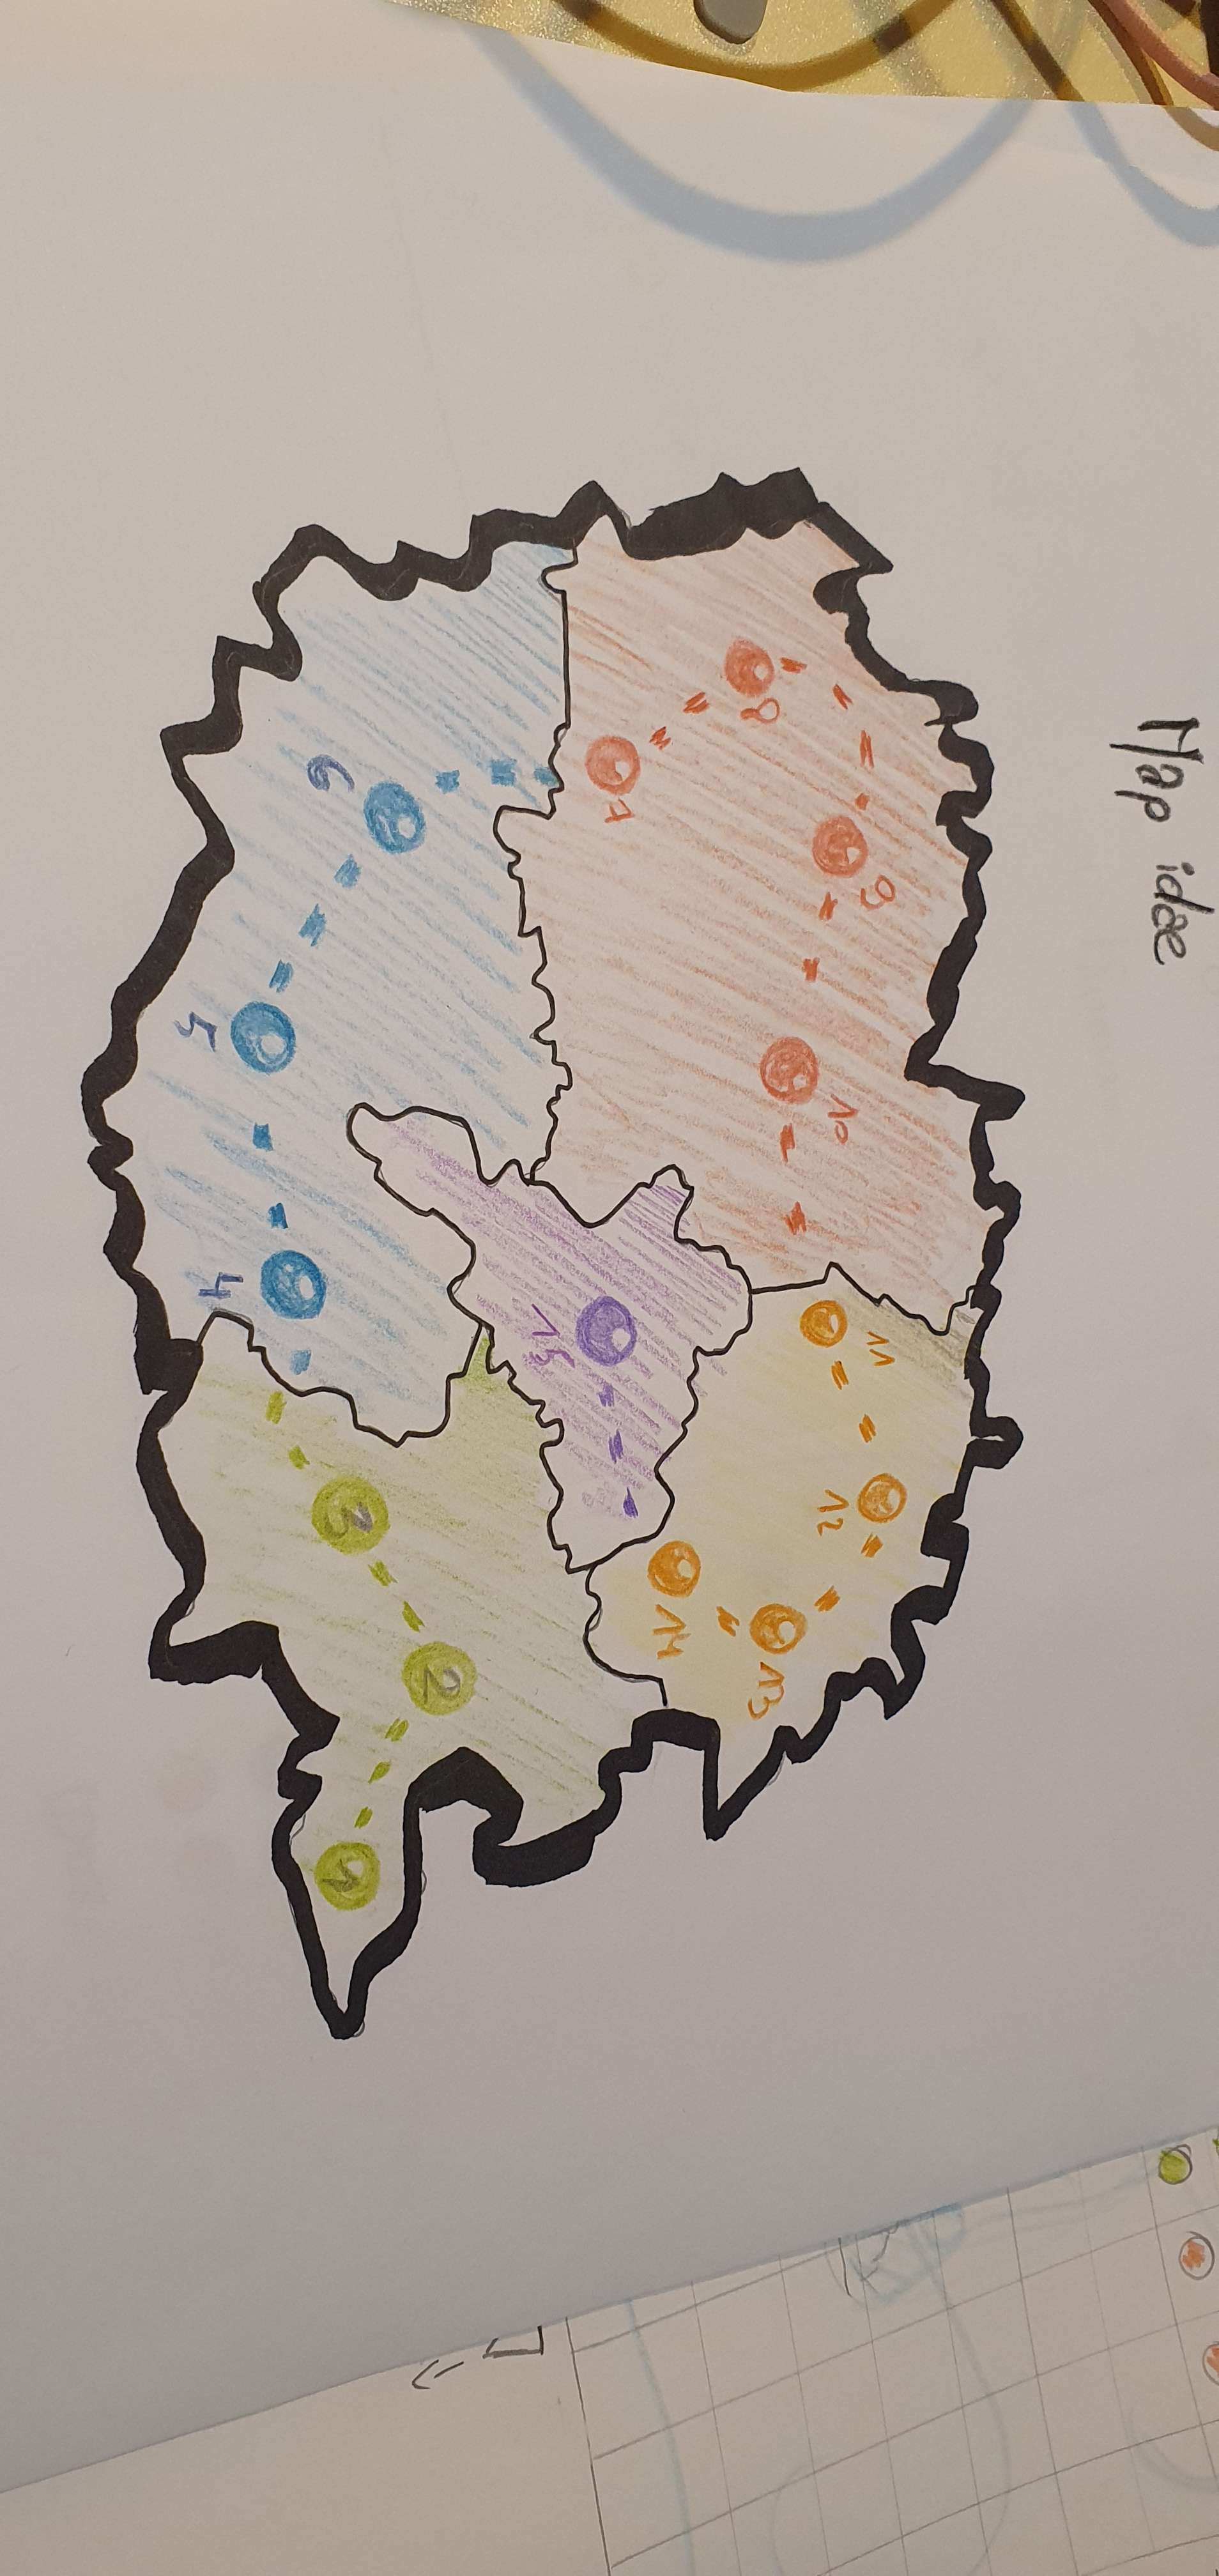 Map idee
1
2
3
4
5
6
7
8
9
10
11
12
13
14
15